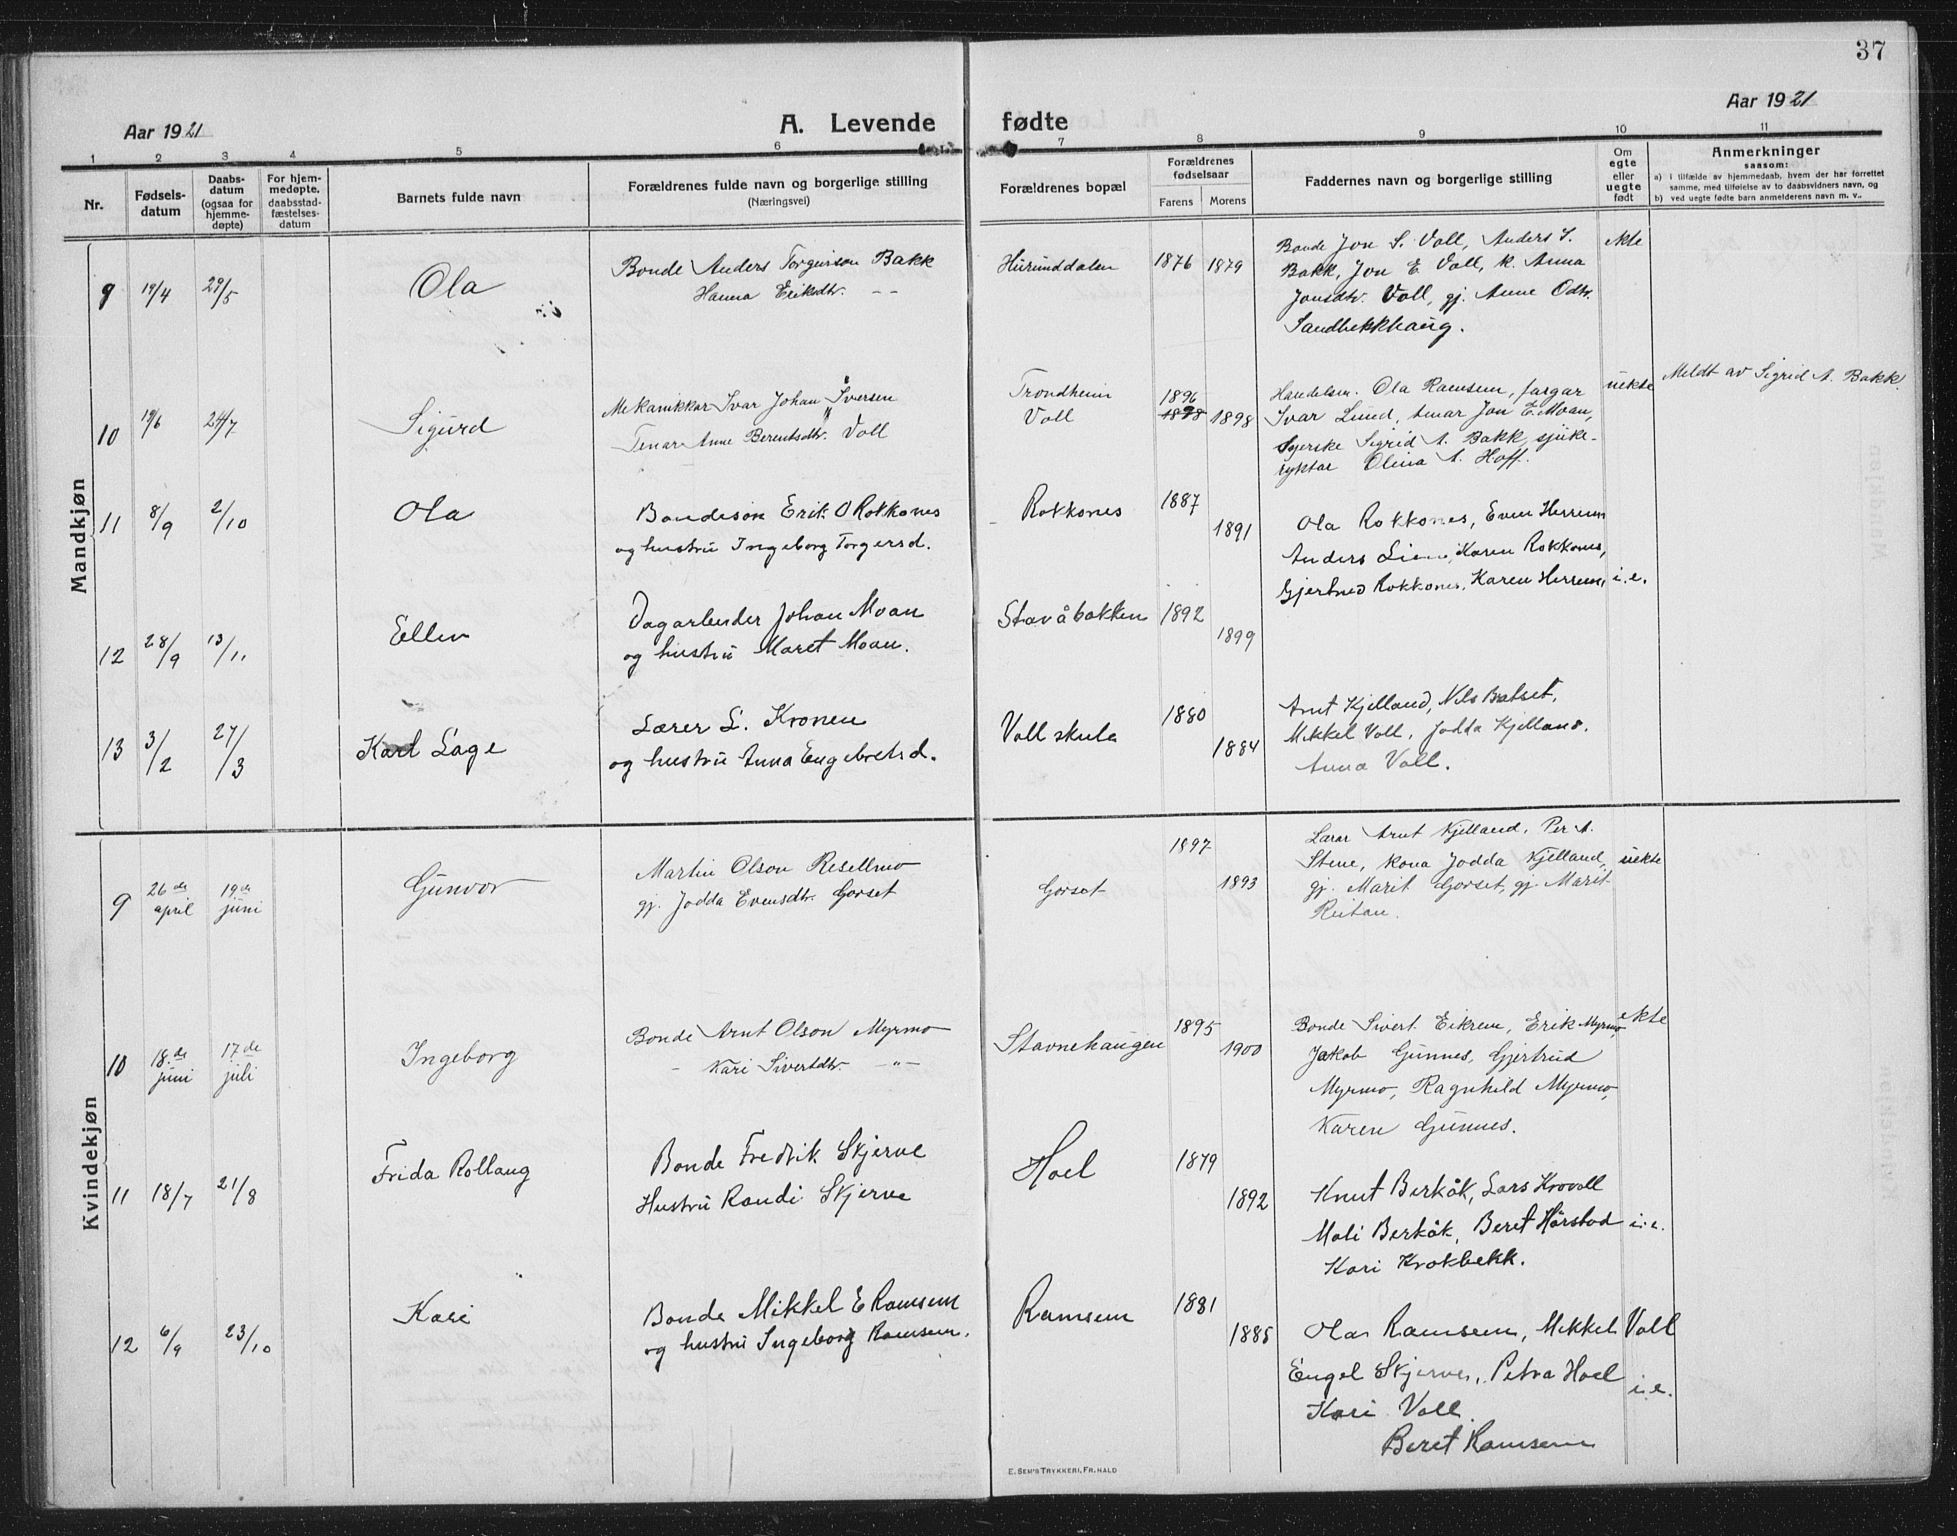 37
Aar 1921
A. Levende fødte
Aar 1921
1 2 3 4 5 6 7 8 9 10 11
Nr.
Fødsels-
datum
Daabs-
datum
(ogsaa for
hjemme-
døpte)
For hjem-
medøpte,
daabsstad-
fæstelses-
datum
Barnets fulde navn
Forældrenes fulde navn og borgerlige stilling
(Næringsvei)
Forældrenes bopæl
Forældrenes
fødselsaar
Farens Morens
Faddernes navn og borgerlige stilling
Om
egte
eller
uegte
født
Anmerkninger
saasom:
a) i tilfælde av hjemmedaab, hvem der har forrettet
samme, med tilføielse av to daabsvidners navn, og
b) ved uegte fødte barn anmelderens navn m. v..
Mandkjøn
9 19/4 29/5 Ola
Bonde Anders Torgeirson Bakk
Hanna Eriksdtr. - -
Hurunddalen 1876 1879
Bonde Jon S. Voll, Anders T.
Bakk, Jon E. Voll, k. Anna
Jonsdtr. Voll, gj. Anne Odtr.
Sandbekkhaug.
ekte
10 19/6 24/7 Sigurd
Mekanikkar Ivar Johan Iversen
Tenar Anne Berentsdtr. Voll
Trondheim
Voll
1896
1898 1898
Handelsm. Ola Ramsem, fargar
Ivar Lund, tenar Jon E. Moan,
Syerske Sigrid A. Bakk, sjuke-
ryktar Olina A. Hoff.
uekte
Meldt av Sigrid A. Bakk.
11 8/9 2/10 Ola
Bondesøn Erik O Rokkones
og hustru Ingeborg Torgersd.
Rokkones 1887 1891
Ola Rokkones, Even Herrem
Anders Lien, Karen Rokkones,
Gjertrud Rokkones, Karen Herrem, i.e.
12 28/9 13/11 Ellev
Dagarbeider Johan Moan
og hustru Maret Moan.
Stavåbakken 1892 1899
13 3/2 27/3 Karl Lage
Lærer L. Kronen
og hustru Anna Engebretsd.
Voll skule 1880 1884
Arnt Kjelland, Nils Bætset,
Mikkel Voll, Jodda Kjelland.
Anna Voll.
Kvindekjøn
9 26de april 19de juni Gunvor
Martin Olson Resellmo
gj. Jodda Evensdtr. Gorset
Gorset 1897 1893
Lærar Arnt Kjelland, Per A.
Stene, kona Jodda Kjelland,
gj. Marit Gorset, gj. Marit
Reitan.
uekte
10 18.de juni 17de juli Ingeborg
Bonde Arnt Olson Myrmo
- Kari Sivertdtr. -"-
Stavnehaugen 1895 1900
Bonde Sivert Eikrem, Erik Myrmo,
Jakob Gunnes, Gjertrud
Myrmo, Ragnhild Myrmo,
Karen Gunnes.
ekte
11 18/7 21/8 Frida Rollaug
Bonde Fredrik Skjerve
Hustru Randi Skjerve
Hoel 1879 1892
Knut Berkåk, Lars Krovoll
Mali Berkåk, Beret Hårstad
Kari Krokbekk.
i.e.
12 6/9 23/10 Kari
Bonde Mikkel E Ramsem
og hustru Ingeborg Ramsem.
Ramsem 1881 1885
Ola Ramsem, Mikkel Voll
Engel Skjerve, Petra Hoel
Kari Voll.
Beret Ramsem
i.e.
E. Sem's Trykkeri, Fr.hald